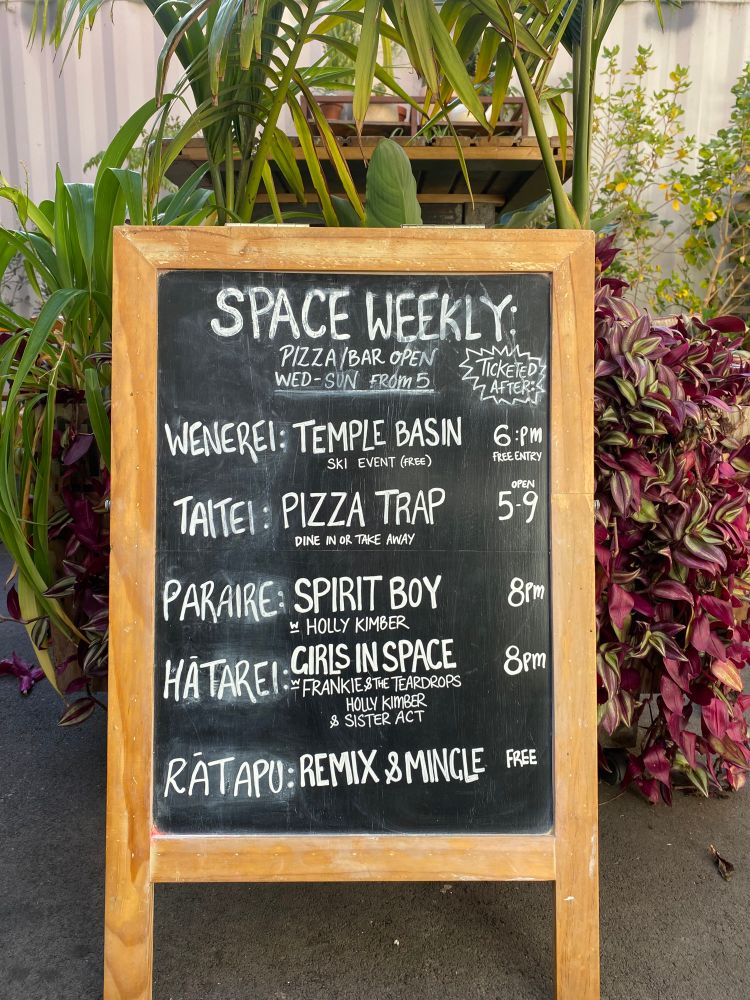 SPACE WEEKLY:
PIZZA/BAR OPEN
WED-SUN FROM 5
TICKETED
AFTER:
WENEREI: TEMPLE BASIN 6:PM
SKI EVENT (FREE) FREE ENTRY
TAITEI: PIZZA TRAP OPEN 5-9
DINE IN OR TAKE AWAY
PARAIRE: SPIRIT BOY 8PM
W HOLLY KIMBER
HĀTAREI: GIRLS IN SPACE 8PM
W FRANKIE & THE TEARDROPS
HOLLY KIMBER
& SISTER ACT
RĀTAPU: REMIX & MINGLE FREE